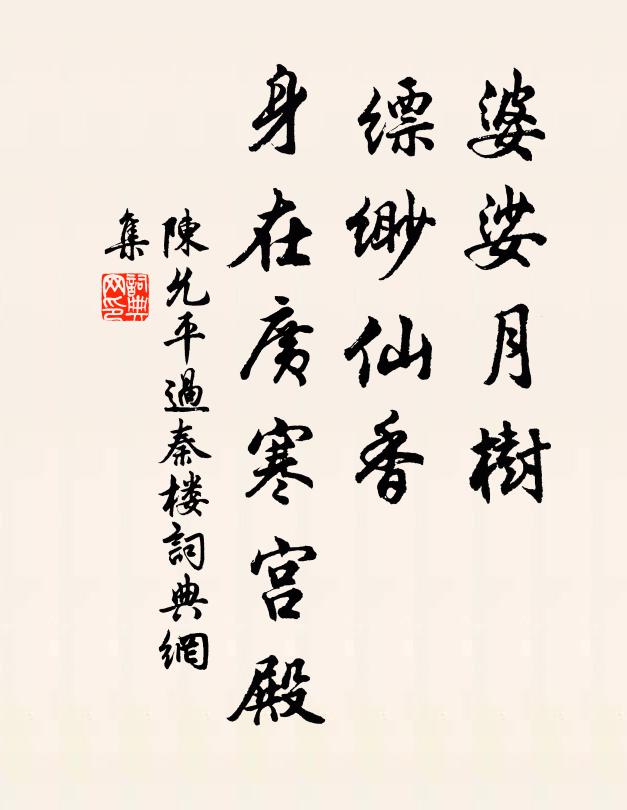 婆娑月樹
縹緲仙香
身在廣寒宫殿
陳允平過秦楼詞典網
集
詞典
网印